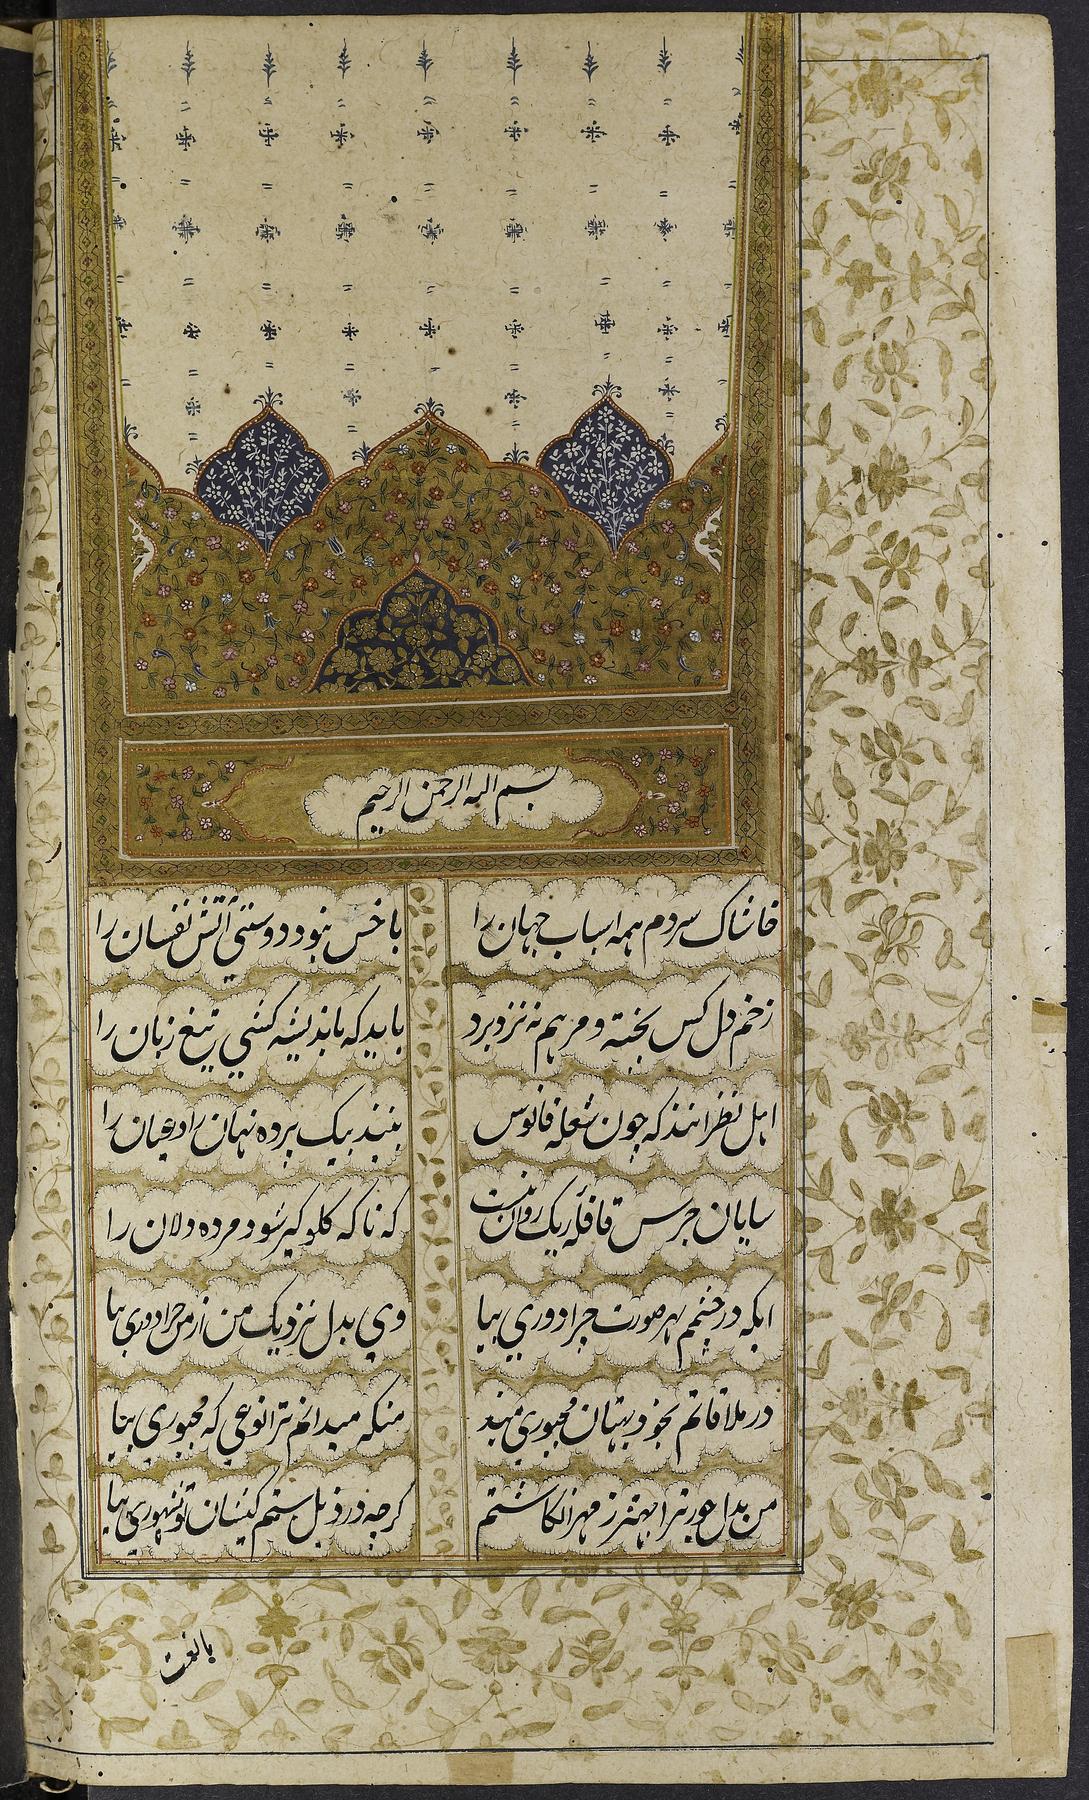 بسم الله الرحمن الرحیم
خاشاک سردم همه اسباب جهان را با خس نبود دوستی آتش نفسان را
زخم دل کس بخیه و مرهم نه نزدبرد باید که باندیشه کشی تیغ زبان را
اهل نظر انند که چون شعله فانوس بینند بیک پرده نهان را و عیان را
جرس قافله ریک روانست که ناکه کلوکیر شود مرده دلان را
ایکه در چشمم بهر صورت چرا دوری بیا وی بدل نزدیک من از من چرا دوری بیا
در ملاقاتم بخود بهتان مجبوری مبند منکه میدانم ترا نوعی که مجبوری بیا
من بدل جور ترا بهتر ز مهر کرچه در ستم کیسان تو مشهوری بیا